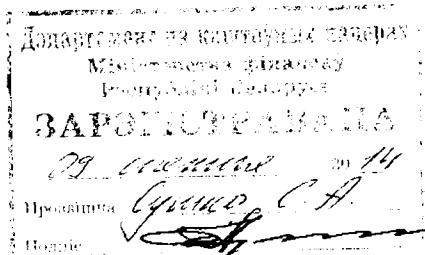 Дэпартамент па каштоўных паперах
Міністэрства фінансаў
Рэспублікі Беларусь
ЗАРЭГІСТРАВАНА
09 2014
Прозвішча С. А.
Подпіс